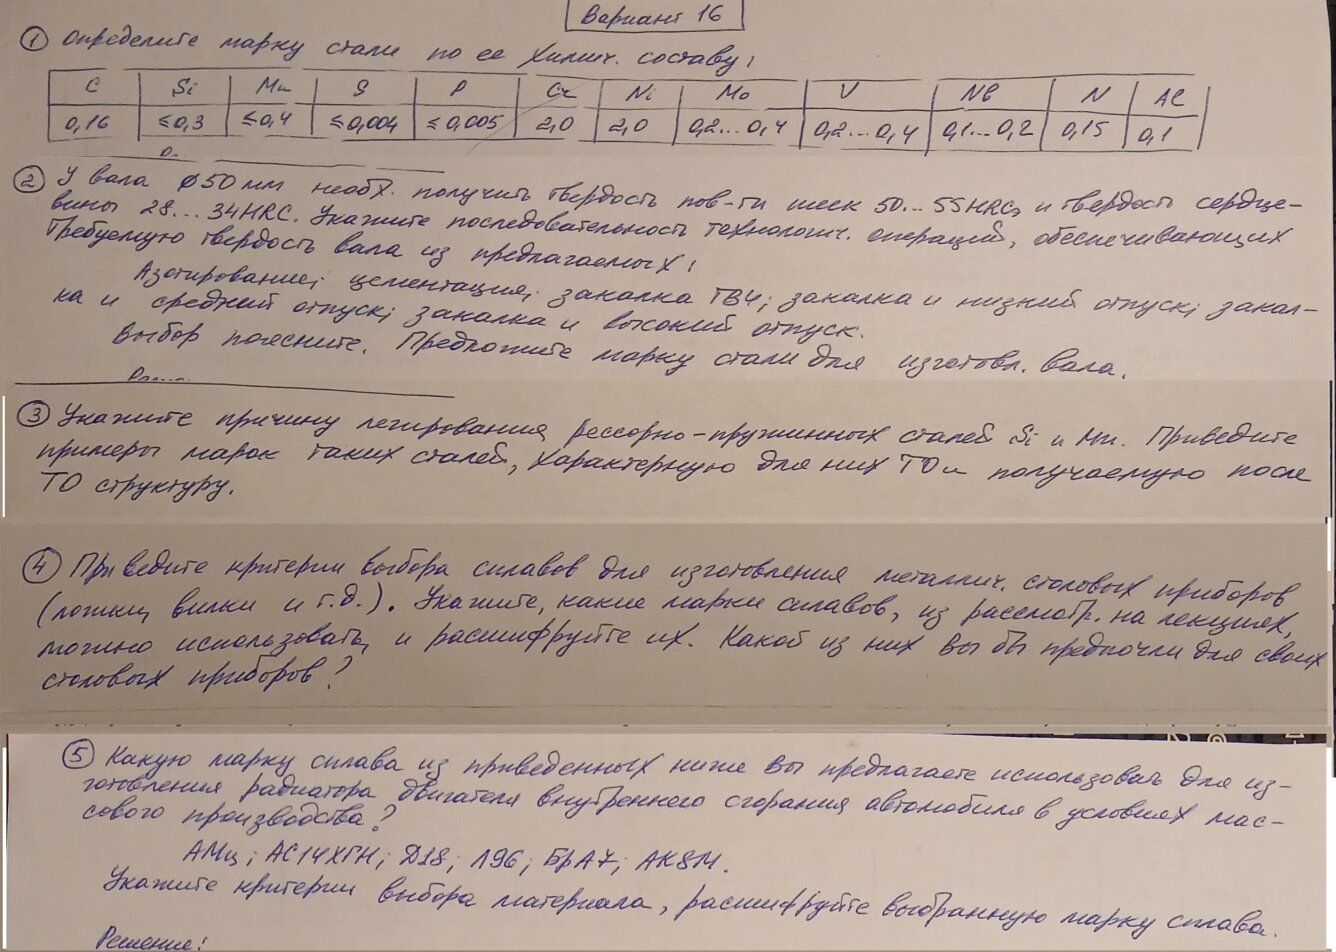 Вариант 16
① Определите марку стали по ее химич. составу:
C Si Mn S P Cr Ni Mo V Nb N Al
0,16 ≤0,3 ≤0,4 ≤0,004 ≤0,005 2,0 2,0 0,2...0,4 0,2...0,4 0,1...0,2 0,15 0,1
② У вала ø50 мм необх. получить твердость пов-ти шеек 50...55HRCэ и твердость сердце-
вины 28...34HRC. Укажите последовательность технологич. операций, обеспечивающих
требуемую твердость вала из предлагаемых:
Азотирование; цементация; закалка ТВЧ; закалка и низкий отпуск; закал-
ка и средний отпуск; закалка и высокий отпуск.
Выбор поясните. Предложите марку стали для изготовл. вала.
③ Укажите причину легирования рессорно-пружинных сталей Si и Mn. Приведите
примеры марок таких сталей, характерную для них ТО и получаемую после
ТО структуру.
④ Приведите критерии выбора сплавов для изготовления металлич. столовых приборов
(ложки, вилки и т.д.). Укажите, какие марки сплавов, из рассмотр. на лекциях,
можно использовать, и расшифруйте их. Какой из них вы бы предпочли для своих
столовых приборов?
⑤ Какую марку сплава из приведенных ниже Вы предлагаете использовать для из-
готовления радиатора двигателя внутреннего сгорания автомобиля в условиях мас-
сового производства?
АМц; АС14ХГН; Д18; Л96; БрА7; АК8М.
Укажите критерии выбора материала, расшифруйте выбранную марку сплава.
Решение: